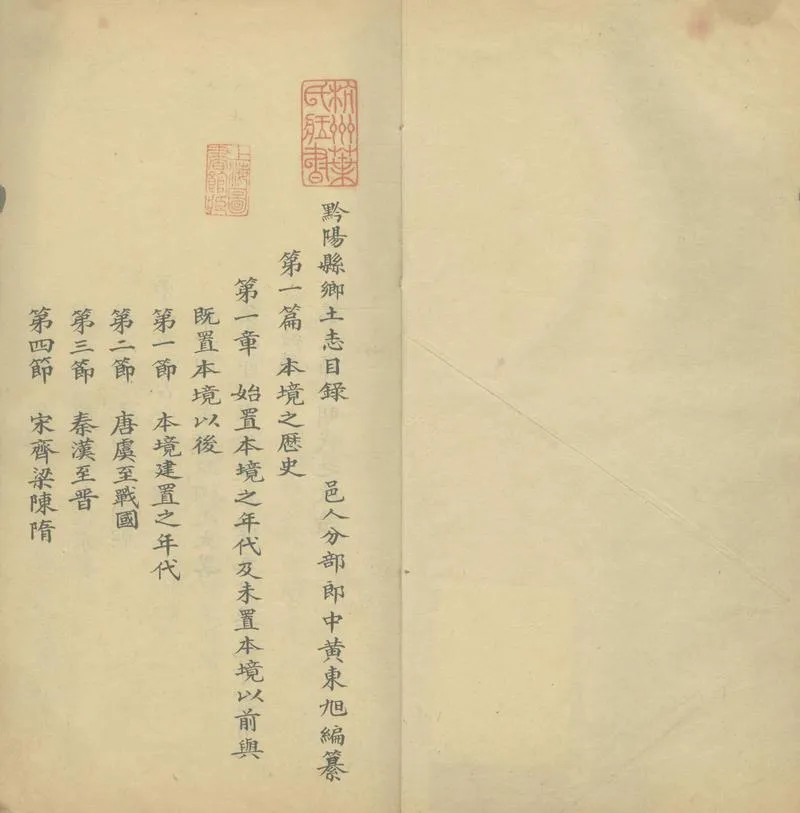 杭州葉氏藏書
上海圖書館藏
黔陽縣鄉土志目錄 邑人分部郎中黃東旭編纂
第一篇 本境之歷史
第一章 始置本境之年代及未置本境以前與
既置本境以後
第一節 本境建置之年代
第二節 唐虞至戰國
第三節 秦漢至晋
第四節 宋齊梁陳隋